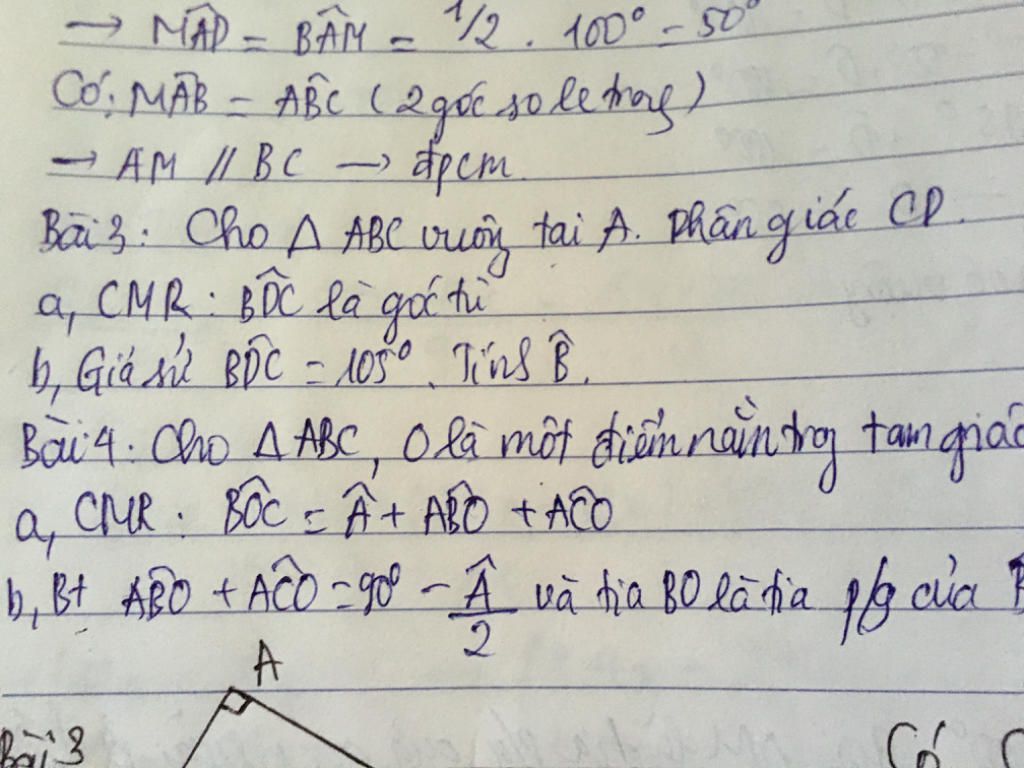 → MÂD = BÂM = 1/2 . 100° = 50°
Có: MÂB = AB̂C (2 góc so le trong)
→ AM // BC → đpcm.
Bài 3: Cho Δ ABC vuông tai A. Phân giác CD.
a, CMR: BD̂C là góc tù
b, Giả sử BD̂C = 105°. Tính B̂.
Bài 4: Cho Δ ABC, O là một điểm nằm trog tam giác
a, CMR: BÔC = Â + AB̂O + AĈO
b, Bt AB̂O + AĈO = 90° - Â/2 và tia BO là tia p/g của
A
Bài 3 Có